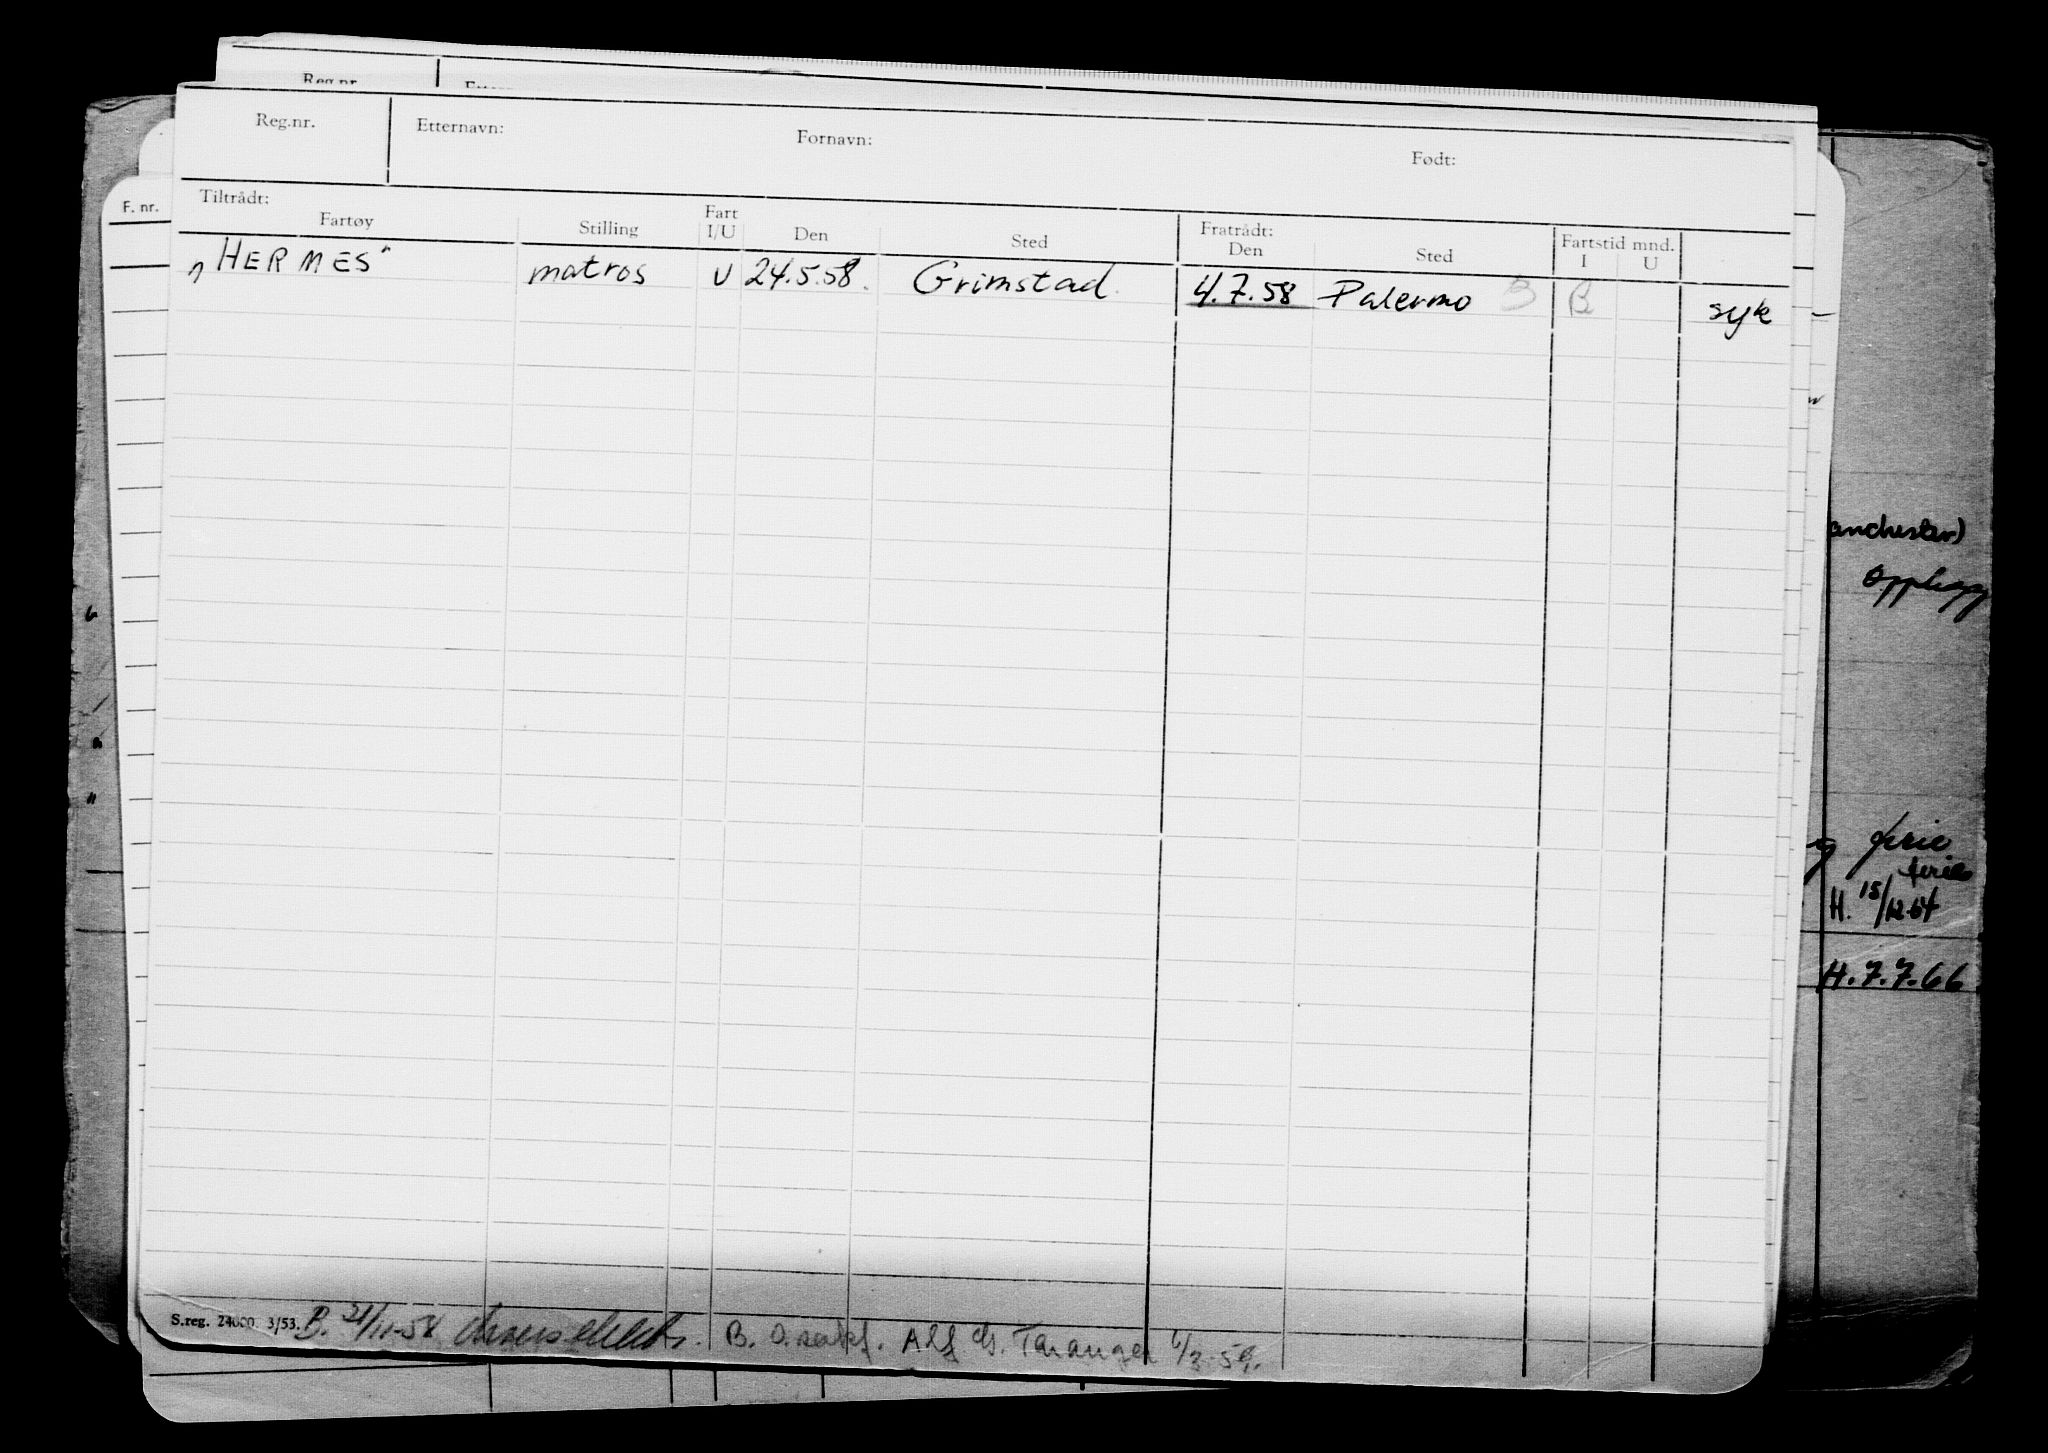 Reg.nr.
Reg.nr. Etternavn: Fornavn: Født:
F. nr.
Tiltrådt: Fratrådt:
Fartøy Stilling Fart I/U Den Sted Den Sted Fartstid mnd. I U
"HERMES" matros U 24.5.58. Grimstad 4.7.58 Palermo B syk
anchester)
Opplegg
ferie
ferie
H. 15/12.64
H. 7.7.66
S.reg. 24000. 3/53. B. 21/11-58 B. Alf Taranger